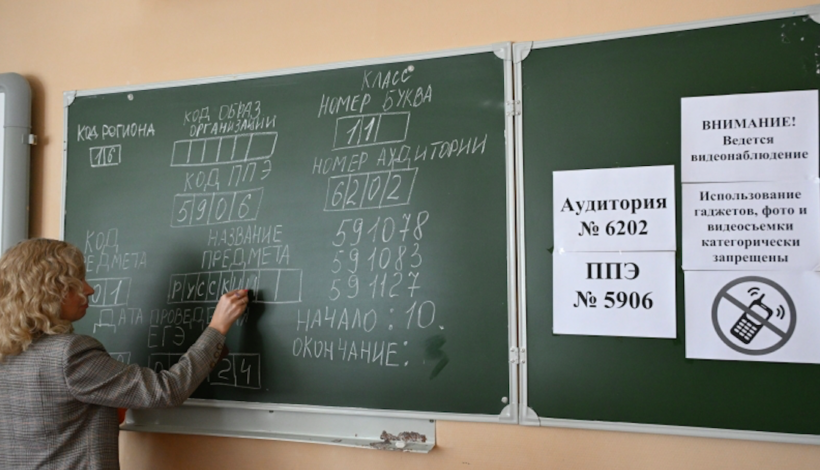 КОД РЕГИОНА
16
КОД ОБРАЗ
ОРГАНИЗАЦИИ
КОД ППЭ
5906
КЛАСС
НОМЕР БУКВА
11
НОМЕР АУДИТОРИИ
6202
КОД
01
НАЗВАНИЕ
ПРЕДМЕТА
РУССКИЙ
ДАТА
ЕГЭ
24
591078
591083
591127
НАЧАЛО: 10.
ОКОНЧАНИЕ:
Аудитория
№ 6202
ППЭ
№ 5906
ВНИМАНИЕ!
Ведется
видеонаблюдение
Использование
гаджетов, фото и
видеосъемки
категорически
запрещены